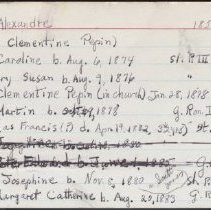 Alexandre 185
Clementine Pepin)
Caroline b. Aug. 6, 1874 St. P. III
ry Susan b. Aug. 9, 1876
Clementine Pepin (in church) Jan 28, 1878
Martin b. 1878 g. Rom. I
as Francis (?) d. Apr. 19, 1882, 3½ yrs) St.
1880
b. June 1, 1885 G.
Josephine b. Nov. 8, 1880 sh. P
Margaret Catherine b. Aug. 20, 1883 G.